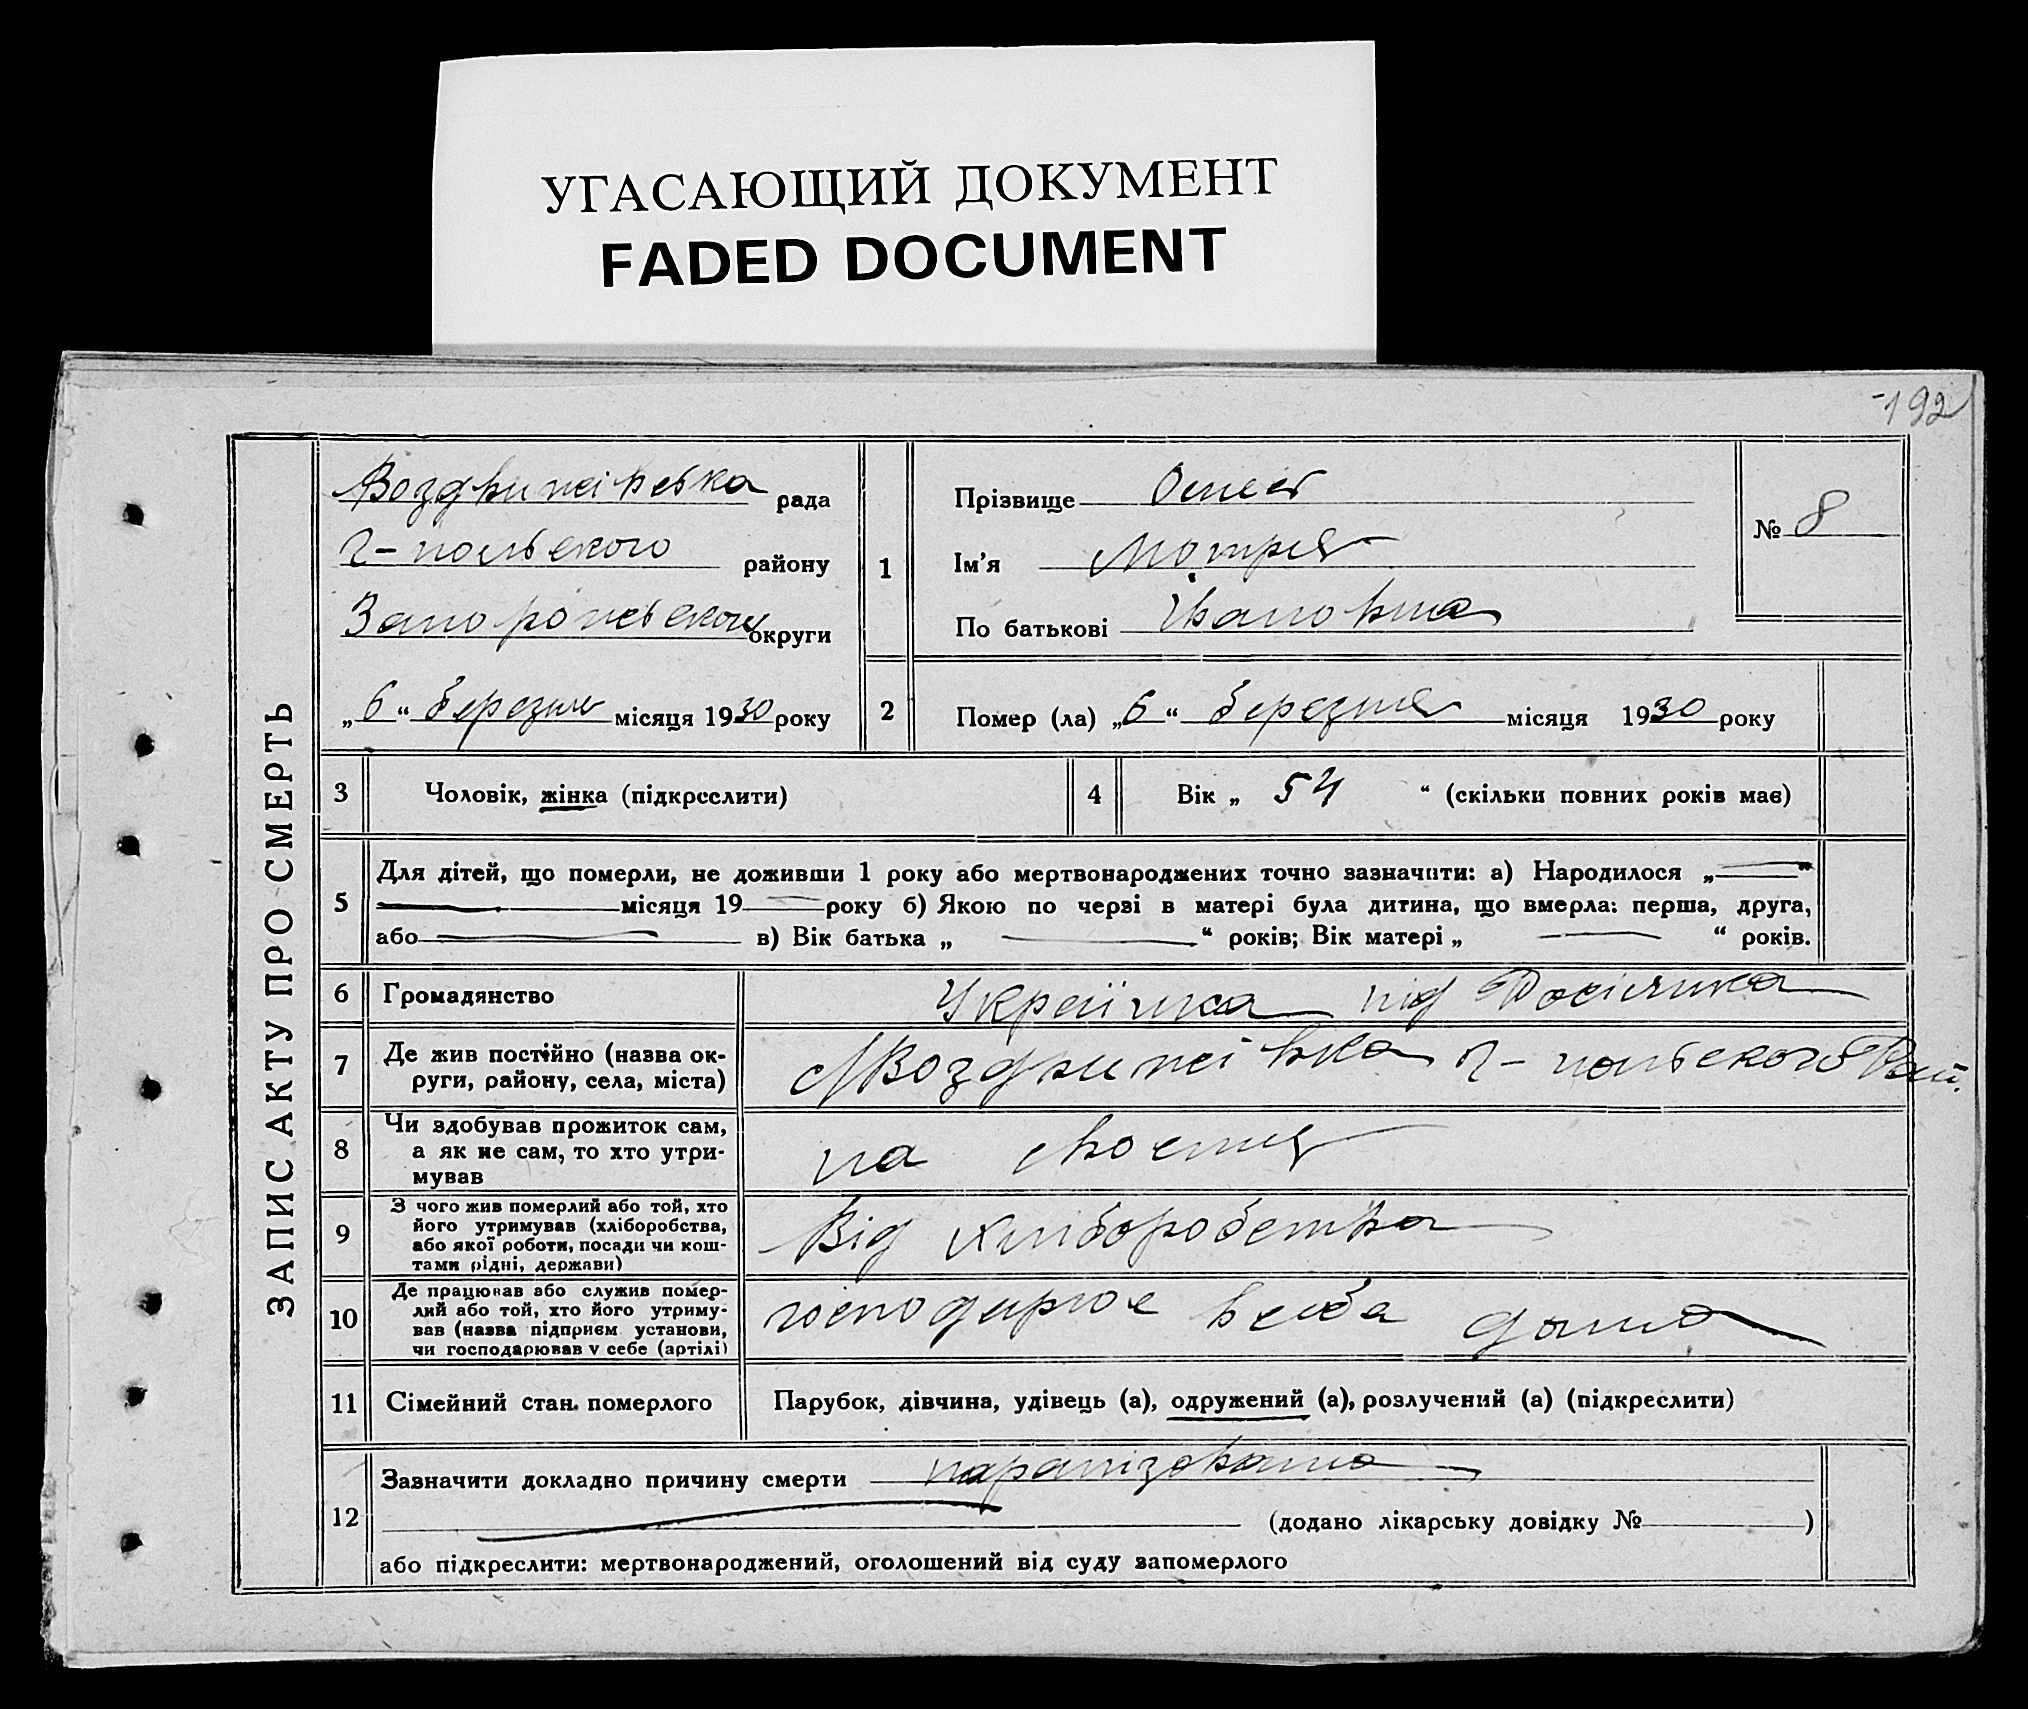 УГАСАЮЩИЙ ДОКУМЕНТ
FADED DOCUMENT
192
ЗАПИС АКТУ ПРО СМЕРТЬ
Воздвижівська рада
Г-польського району
Запоріжського округи
„6“ березня місяця 1930 року
1
Прізвище
Ім’я Мотря
По батькові Івановна
№ 8
2
Помер (ла) „6“ березня місяця 1930 року
3
Чоловік, жінка (підкреслити)
4
Вік „ 54 “ (скільки повних років має)
5
Для дітей, що померли, не доживши 1 року або мертвонароджених точно зазначити: а) Народилося „ “
місяця 19 року б) Якою по черзі в матері була дитина, що вмерла: перша, друга,
або в) Вік батька „ “ років; Вік матері „ “ років.
6
Громадянство
Українка під
7
Де жив постійно (назва ок-
руги, району, села, міста)
Воздвижівка Г-польського Рай.
8
Чи здобував прожиток сам,
а як не сам, то хто утри-
мував
на своєму
9
З чого жив померлий або той, хто
його утримував (хліборобства,
або якої роботи, посади чи кош-
тами рідні, держави)
Від хліборобства
10
Де працював або служив помер-
лий або той, хто його утриму-
вав (назва підприєм установи,
чи господарював у себе (артілі)
всебе дома
11
Сімейний стан померлого
Парубок, дівчина, удівець (а), одружений (а), розлучений (а) (підкреслити)
12
Зазначити докладно причину смерти паралізована
(додано лікарську довідку № )
або підкреслити: мертвонароджений, оголошений від суду запомерлого